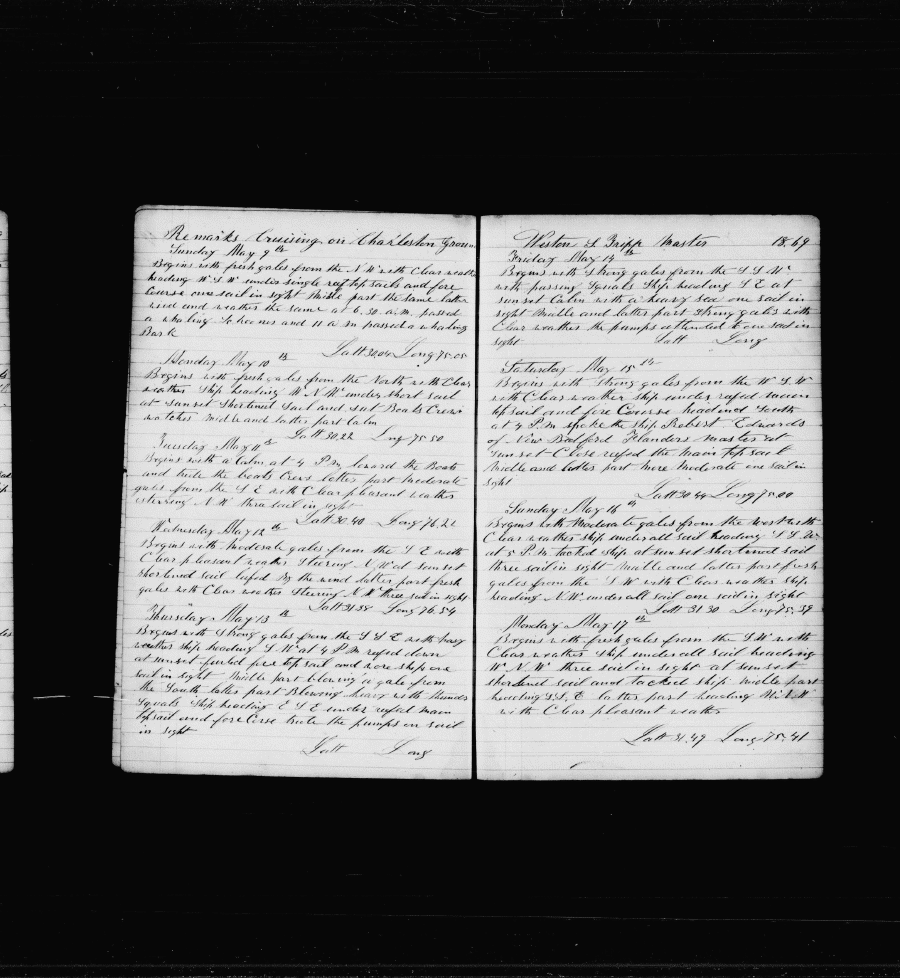 Remarks Cruising on Charleston Groun
Sunday May 9th
Begins with fresh gales from the N W with Clear weath
heading W S W under single reef top sails and fore
Course one sail in sight Middle part the same latter
wind and weather the same at 6.30 a.m. passed
a whaling Schooner and 11 a m passed a whaling
Bark
Latt 30.04 Long 75.05
Monday May 10th
Begins with fresh gales from the North with Clear
weather Ship heading W N W under short sail
at Sunset Shortened Sail and set Boats Crews
watches Middle and latter part Calm
Latt 30.22 Lng 75.50
Tuesday May 11th
Begins with a Calm at 4 P M the Boats
and the boats Crews latter part Moderate
gales from the S E with Clear pleasant weather
steering N W three sail in sight
Latt 30.40 Long 76.22
Wednesday May 12th
Begins with Moderate gales from the S E with
Clear pleasant weather Steering N W at Sunset
shortened sail lufed By the wind latter part fresh
gales with Clear weather Steering N W three sail in sight
Latt 31.38 Long 76.54
Thursday May 13th
Begins with Strong gales from the S S E with heavy
weather ship heading S W at 4 P M refed down
at sunset furled fore top sail and wore ship one
sail in sight Middle part blowing a gale from
the South latter part Blowing heavy with thunder
Squals Ship heading E S E under refed main
topsail and fore Corse the pumps on sail
in sight
Latt Long
Weston S Tripp Master 18.69
Friday May 14th
Begins with Strong gales from the S S W
with passing Squals Ship heading S E at
sunset Calm with a heavy sea one sail in
sight Middle and latter part Strong gales with
Clear weather the pumps attended to one sail in
sight Latt Long
Saturday May 15th
Begins with Strong gales from the W S W
with Clear weather Ship under refed main
top sail and fore Course headind South
at 4 P m spoke the ship Robert Edwards
of New Bedford Flanders Master at
Sunset Close refed the main top sail
Middle and latter part more Moderate one sail in
sight
Latt 30.44 Long 75.00
Sunday May 16th
Begins with Moderate gales from the West with
Clear weather ship under all sail heading S S W
at 5 P. M tacked ship at sunset shortened sail
three sail in sight Middle and latter part fresh
gales from the S W with Clear weather ship
heading N W under all sail one sail in sight
Latt 31 30 Long 75.39
Monday May 17th
Begins with fresh gales from the S W with
Clear weather Ship under all sail heading
W N W three sail in sight at sunset
shortened sail and tacked ship Middle part
heading S S E latter part heading W N W
with Clear pleasant weather
Latt 31.49 Long 75.41